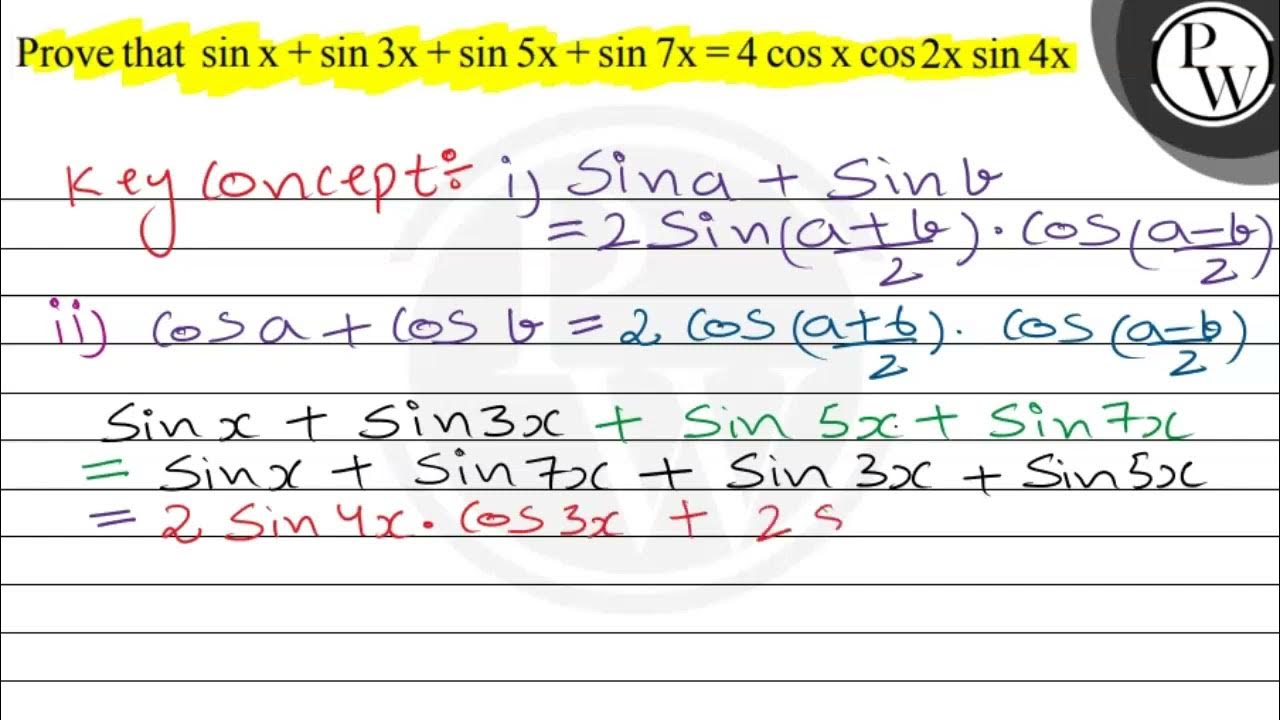 Prove that sin x + sin 3x + sin 5x + sin 7x = 4 cos x cos 2x sin 4x
PW
Key Concept÷ i) Sin a + Sin b
= 2 Sin(a+b/2) · Cos(a-b/2)
ii) Cos a + Cos b = 2 Cos (a+b/2) · Cos (a-b/2)
Sin x + Sin 3x + Sin 5x + Sin 7x
= Sin x + Sin 7x + Sin 3x + Sin 5x
= 2 Sin 4x · Cos 3x + 2 S